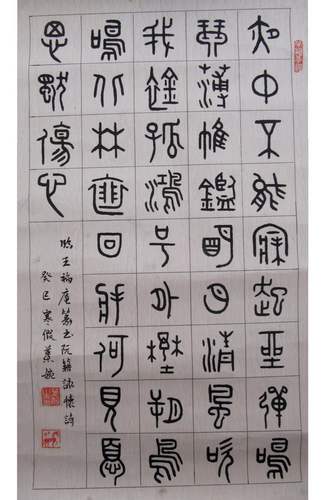 夜中不能寐起坐彈鳴
琴薄帷鑑明月清風吹
我襟孤鴻号外野翔鳥
鳴北林徘回將何見憂
思獨傷心
臨王福庵篆書阮籍詠懷詩
癸巳寒假